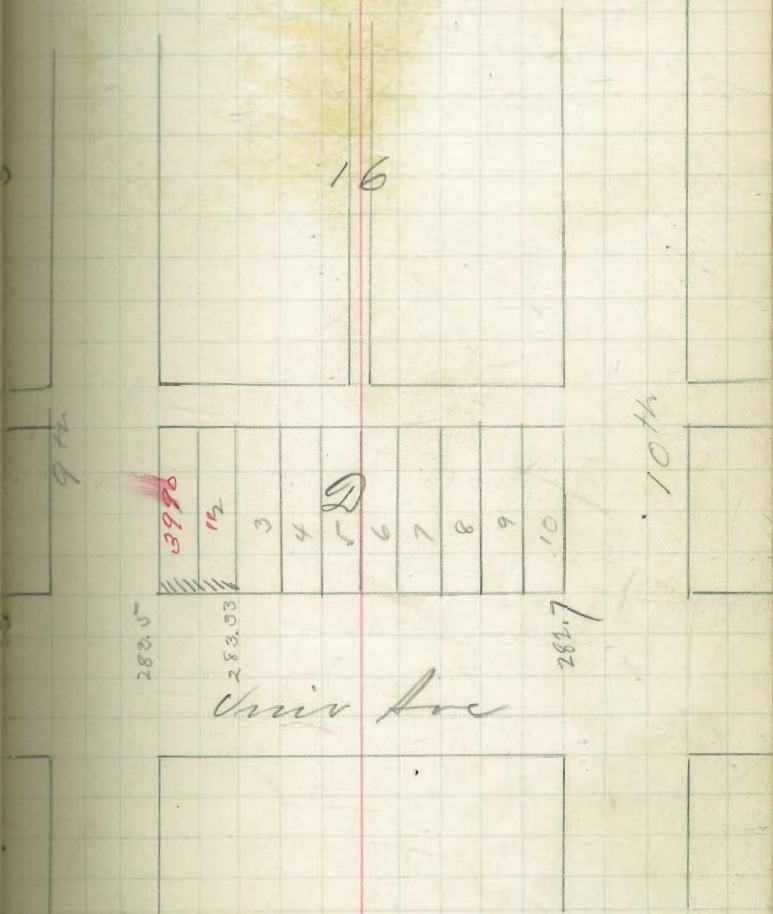 16
9th
10th
3990
3
4
5
D
6
7
8
9
10
283.5
283.33
282.7
Univ Ave